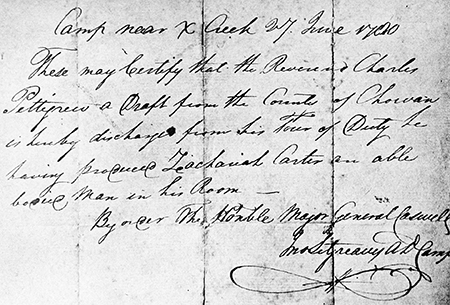 Camp near X Creek 27, June 1780
These may Certify that the Reverend Charles
Pettigrew a Draft from the County of Chowan
is hereby discharg'd from his Tour of Duty he
having produced Zachariah Carter an able
bodied Man in his Room —
By order The Honble Major General Caswell
Jno Fitzreavy AD Camp